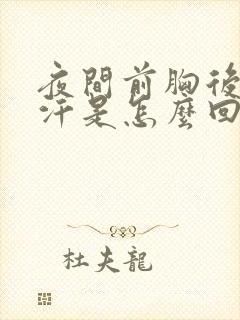 夜間前胸後
汗是怎麼回
杜夫龍